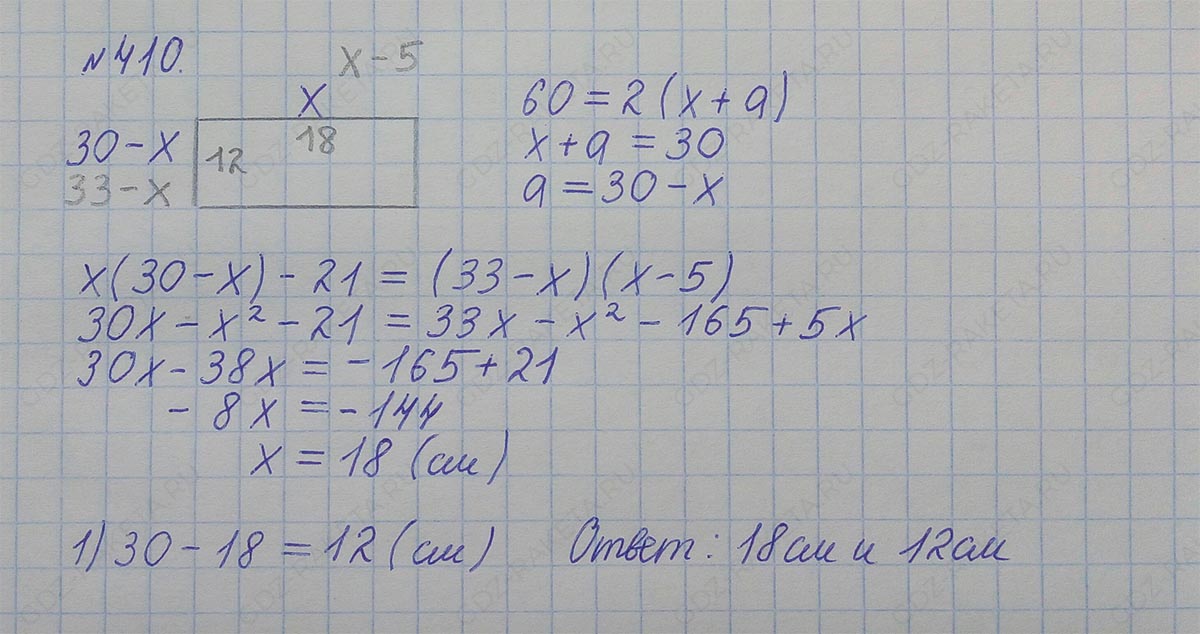 №410.
x-5
x
30-x
33-x
12
18
60=2(x+a)
x+a=30
a=30-x
x(30-x)-21=(33-x)(x-5)
30x-x²-21=33x-x²-165+5x
30x-38x=-165+21
-8x=-144
x=18 (см)
1) 30-18=12 (см)
Ответ: 18см и 12см